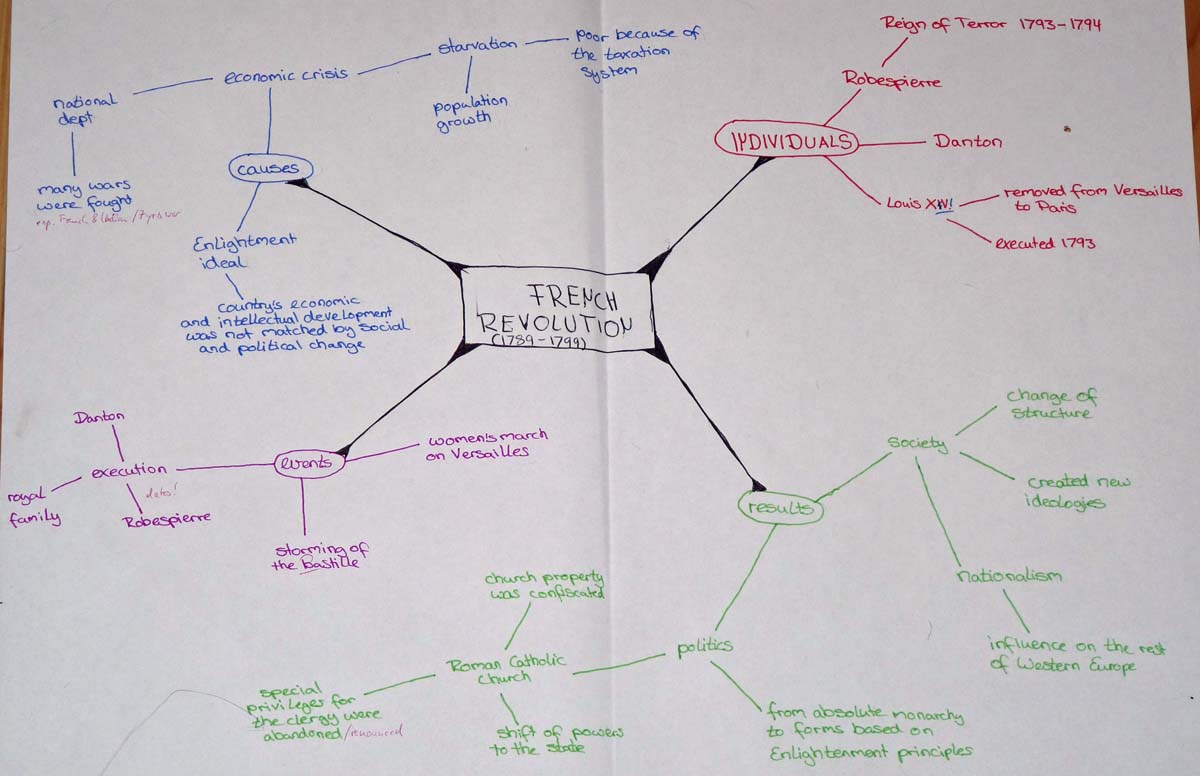 FRENCH
REVOLUTION
(1789-1799)
causes
economic crisis
national
dept
many wars
were fought
starvation
population
growth
poor because of
the taxation
system
Enlightment
ideal
country's economic
and intellectual development
was not matched by social
and political change
INDIVIDUALS
Robespierre
Reign of Terror 1793-1794
Danton
Louis XVI
removed from Versailles
to Paris
executed 1793
events
women's march
on Versailles
storming of
the bastille
execution
Danton
royal
family
dates!
Robespierre
results
society
change of
structure
created new
ideologies
nationalism
influence on the rest
of Western Europe
politics
from absolute monarchy
to forms based on
Enlightenment principles
Roman Catholic
Church
church property
was confiscated
shift of powers
to the state
special
privileges for
the clergy were
abandoned/renounced